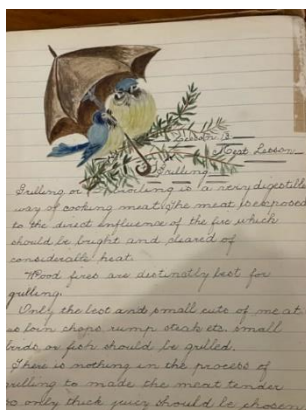 Lesson 3
Meat Lesson
Grilling
Grilling or Broiling is a very digestible
way of cooking meat. The meat is exposed
to the direct influence of the fire which
should be bright and cleared of
considerable heat.
Wood fires are distinatly best for
grilling.
Only the best and small cuts of meat
as loin chops, rump steak ets. small
birds or fish should be grilled.
There is nothing in the process of
grilling to made the meat tender
so only thick juicy should be chosen